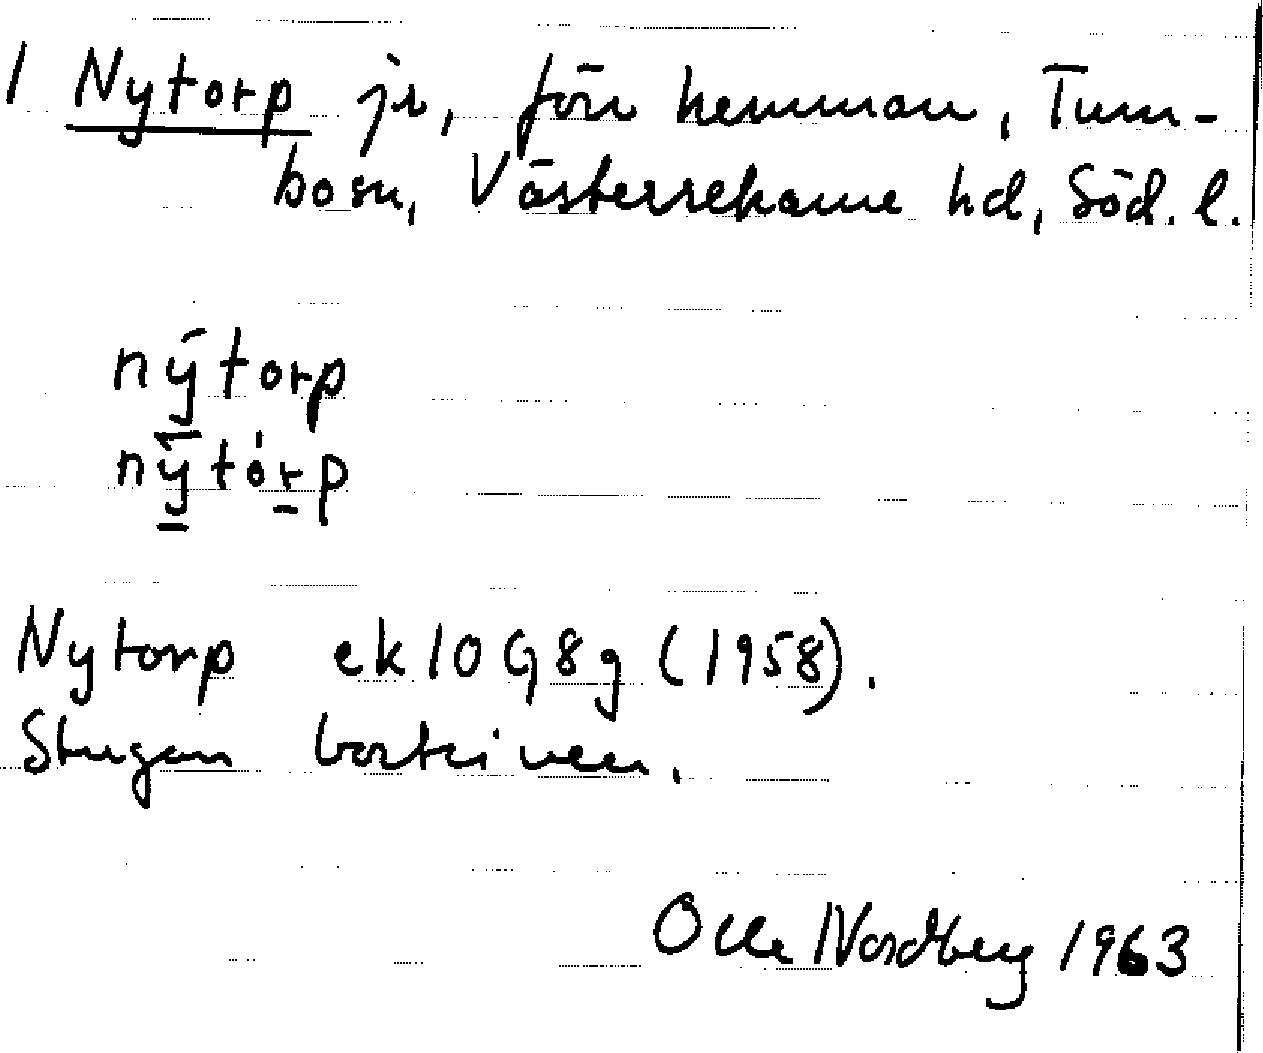 1 Nytorp jr, förr hemman, Tum-
bo sn, Västerrekarne hd, Söd. l.
nýtorp
nȳtórp
Nytorp ek 10 G 8 g (1958).
Stugan bortriven.
Olle Nordberg 1963